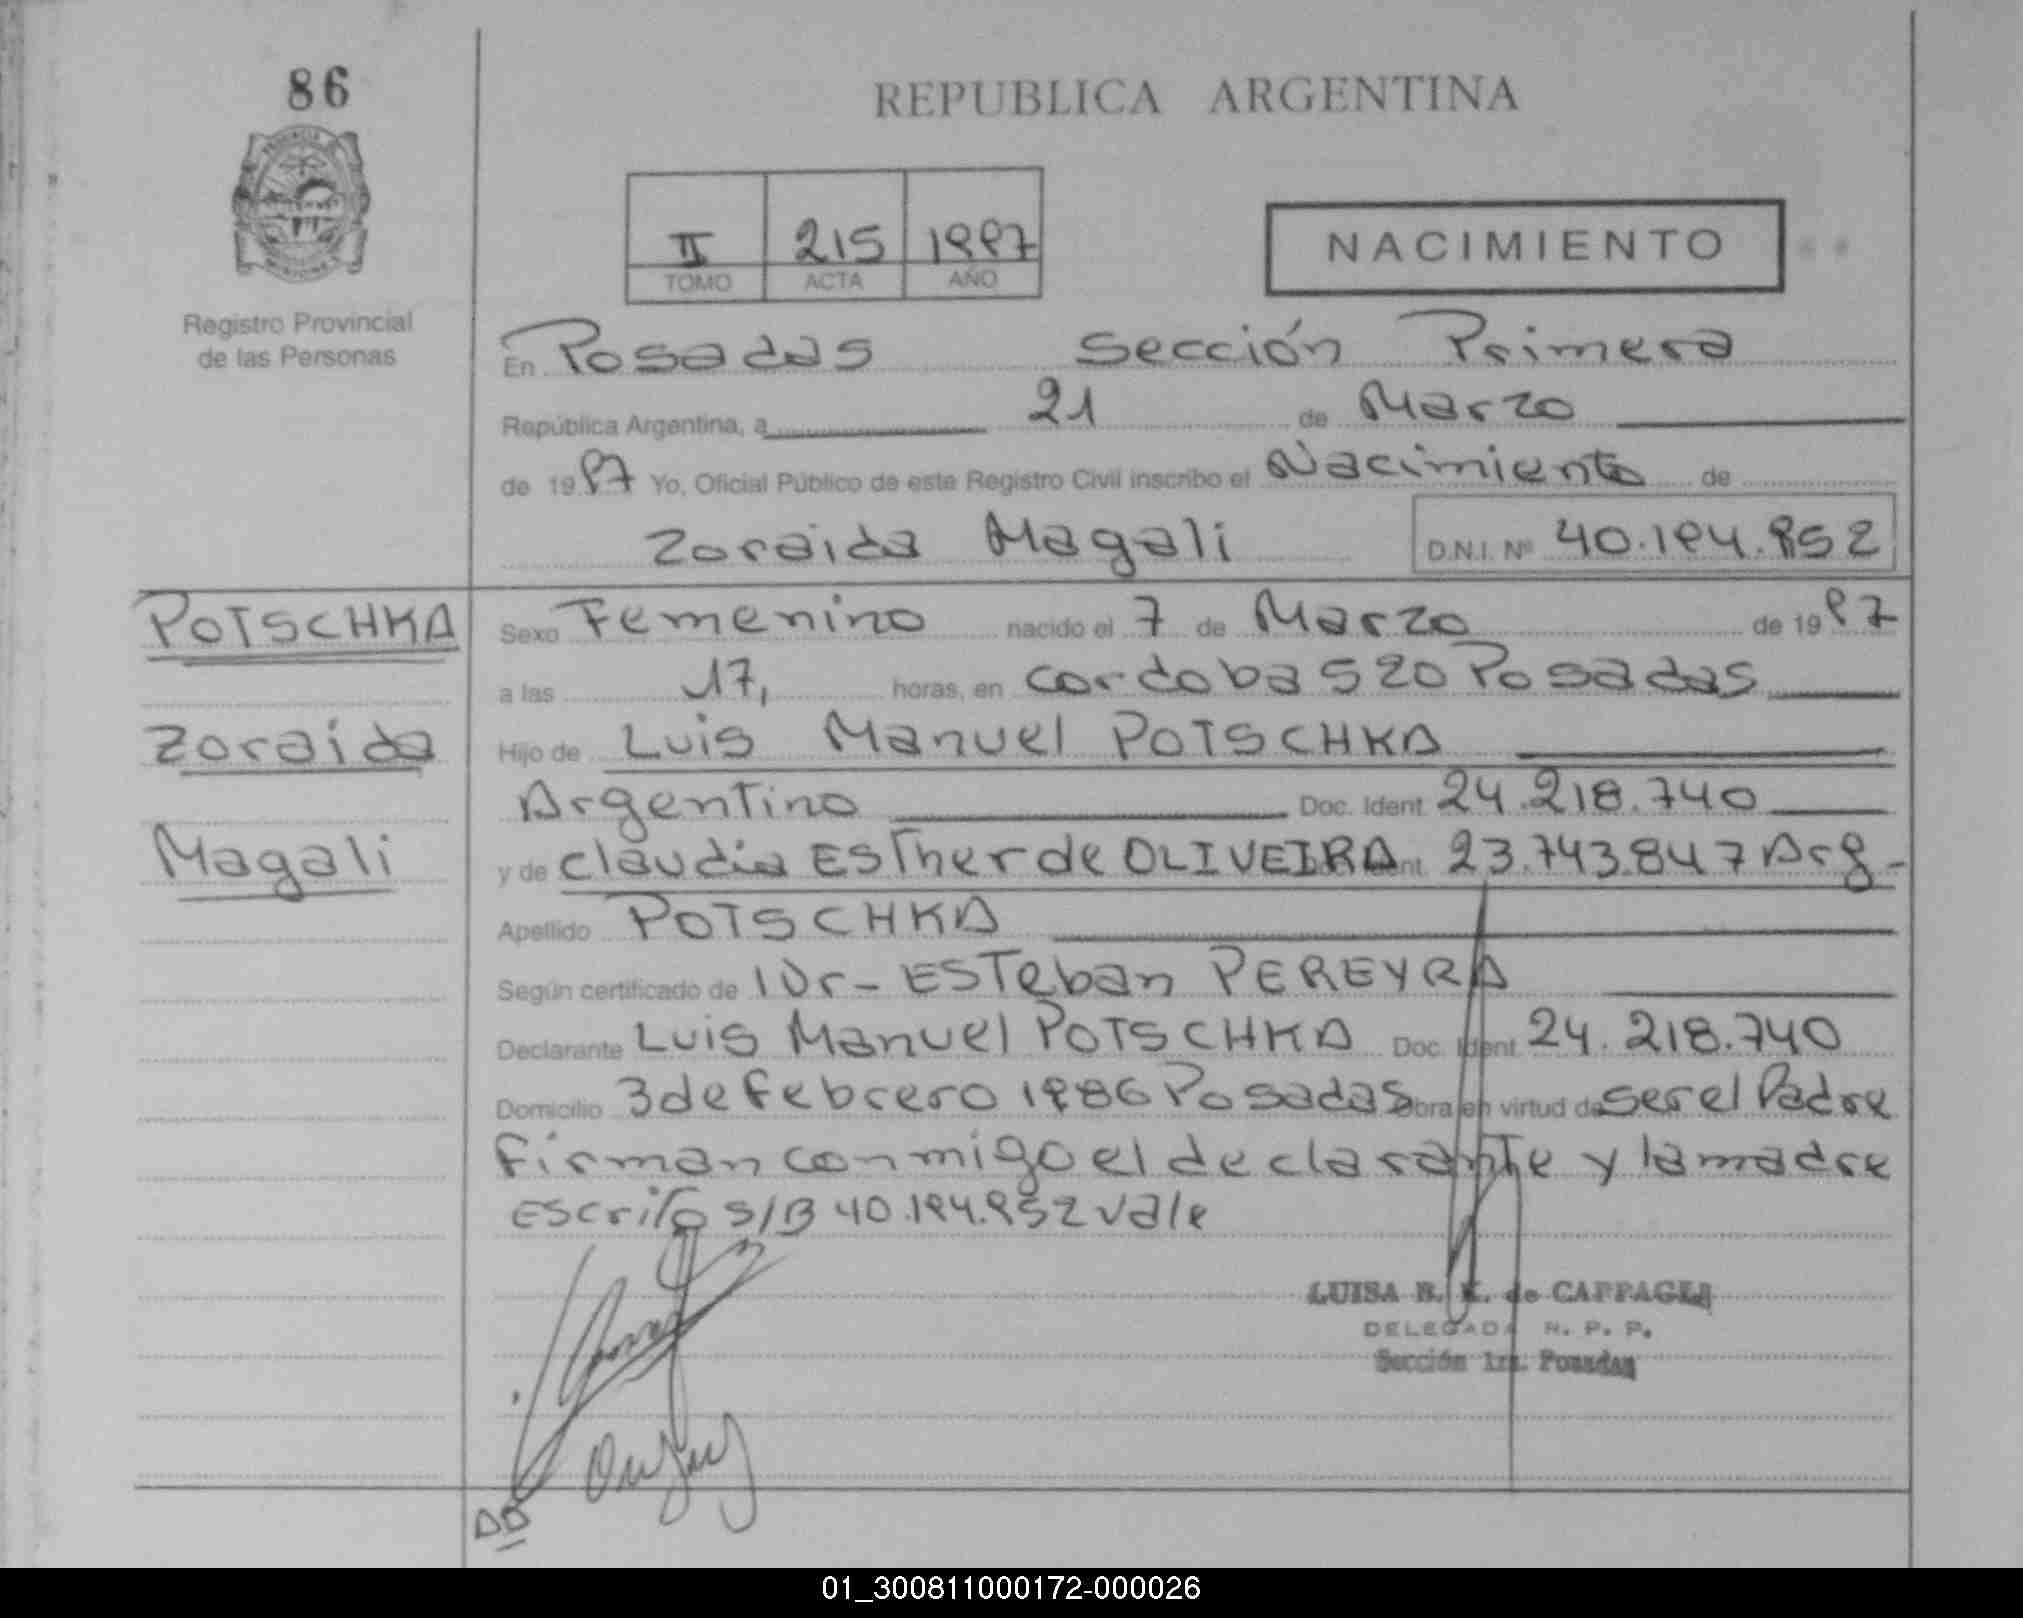 86
REPUBLICA ARGENTINA
II 215 1997
TOMO ACTA AÑO
NACIMIENTO
Registro Provincial
de las Personas
En Posadas Sección Primera
República Argentina, a 21 de Marzo
de 1997 Yo, Oficial Público de este Registro Civil inscribo el Nacimiento de
Zoraida Magali D.N.I. Nº 40.194.952
POTSCHKA
Zoraida
Magali
Sexo Femenino nacido el 7 de Marzo de 1997
a las 17, horas, en cordoba 520 Posadas
Hijo de Luis Manuel POTSCHKA
Argentino Doc. Ident. 24.218.740
y de claudia Esther de OLIVEIRA 23.743.847 Arg-
Apellido POTSCHKA
Según certificado de Dr- Esteban PEREYRA
Declarante Luis Manuel POTSCHKA Doc. Ident. 24.218.740
Domicilio 3 de Febrero 1986 Posadas Obra en virtud de ser el Padre
Firman conmigo el declarante y la madre
Escrito S/B 40.194.952 vale
LUISA B. K. de CAPPAGLI
DELEGADA R. P. P.
Sección 1ra. Posadas
01_300811000172-000026